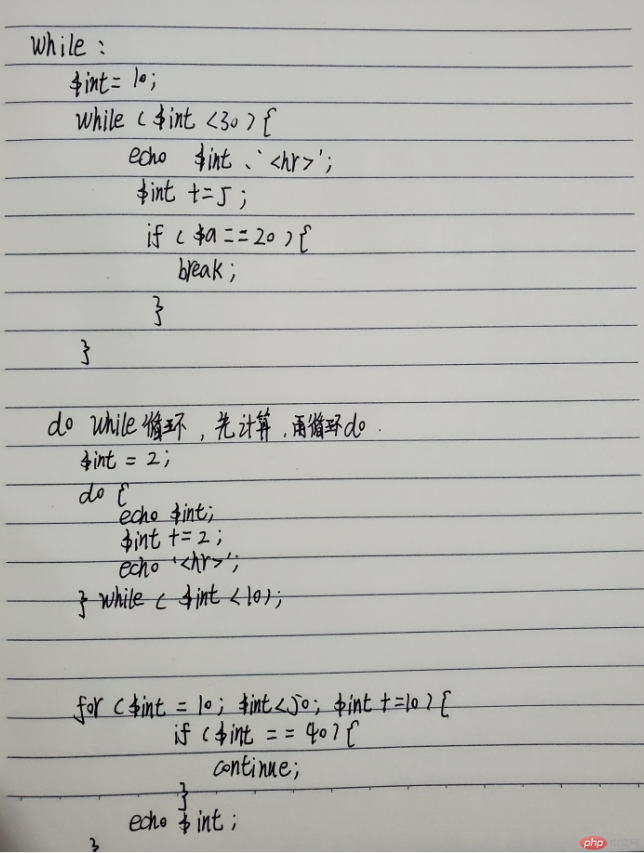 while :
$int = 10;
while ( $int <30 ) {
echo $int 、'<hr>';
$int += 5 ;
if ( $a == 20 ) {
break ;
}
}
do while 循环 , 先计算 , 再循环do .
$int = 2 ;
do {
echo $int;
$int += 2 ;
echo '<hr>';
} while ( $int < 10 );
for ( $int = 10 ; $int < 50 ; $int += 10 ) {
if ( $int == 40 ) {
continue;
}
echo $int ;
}
php